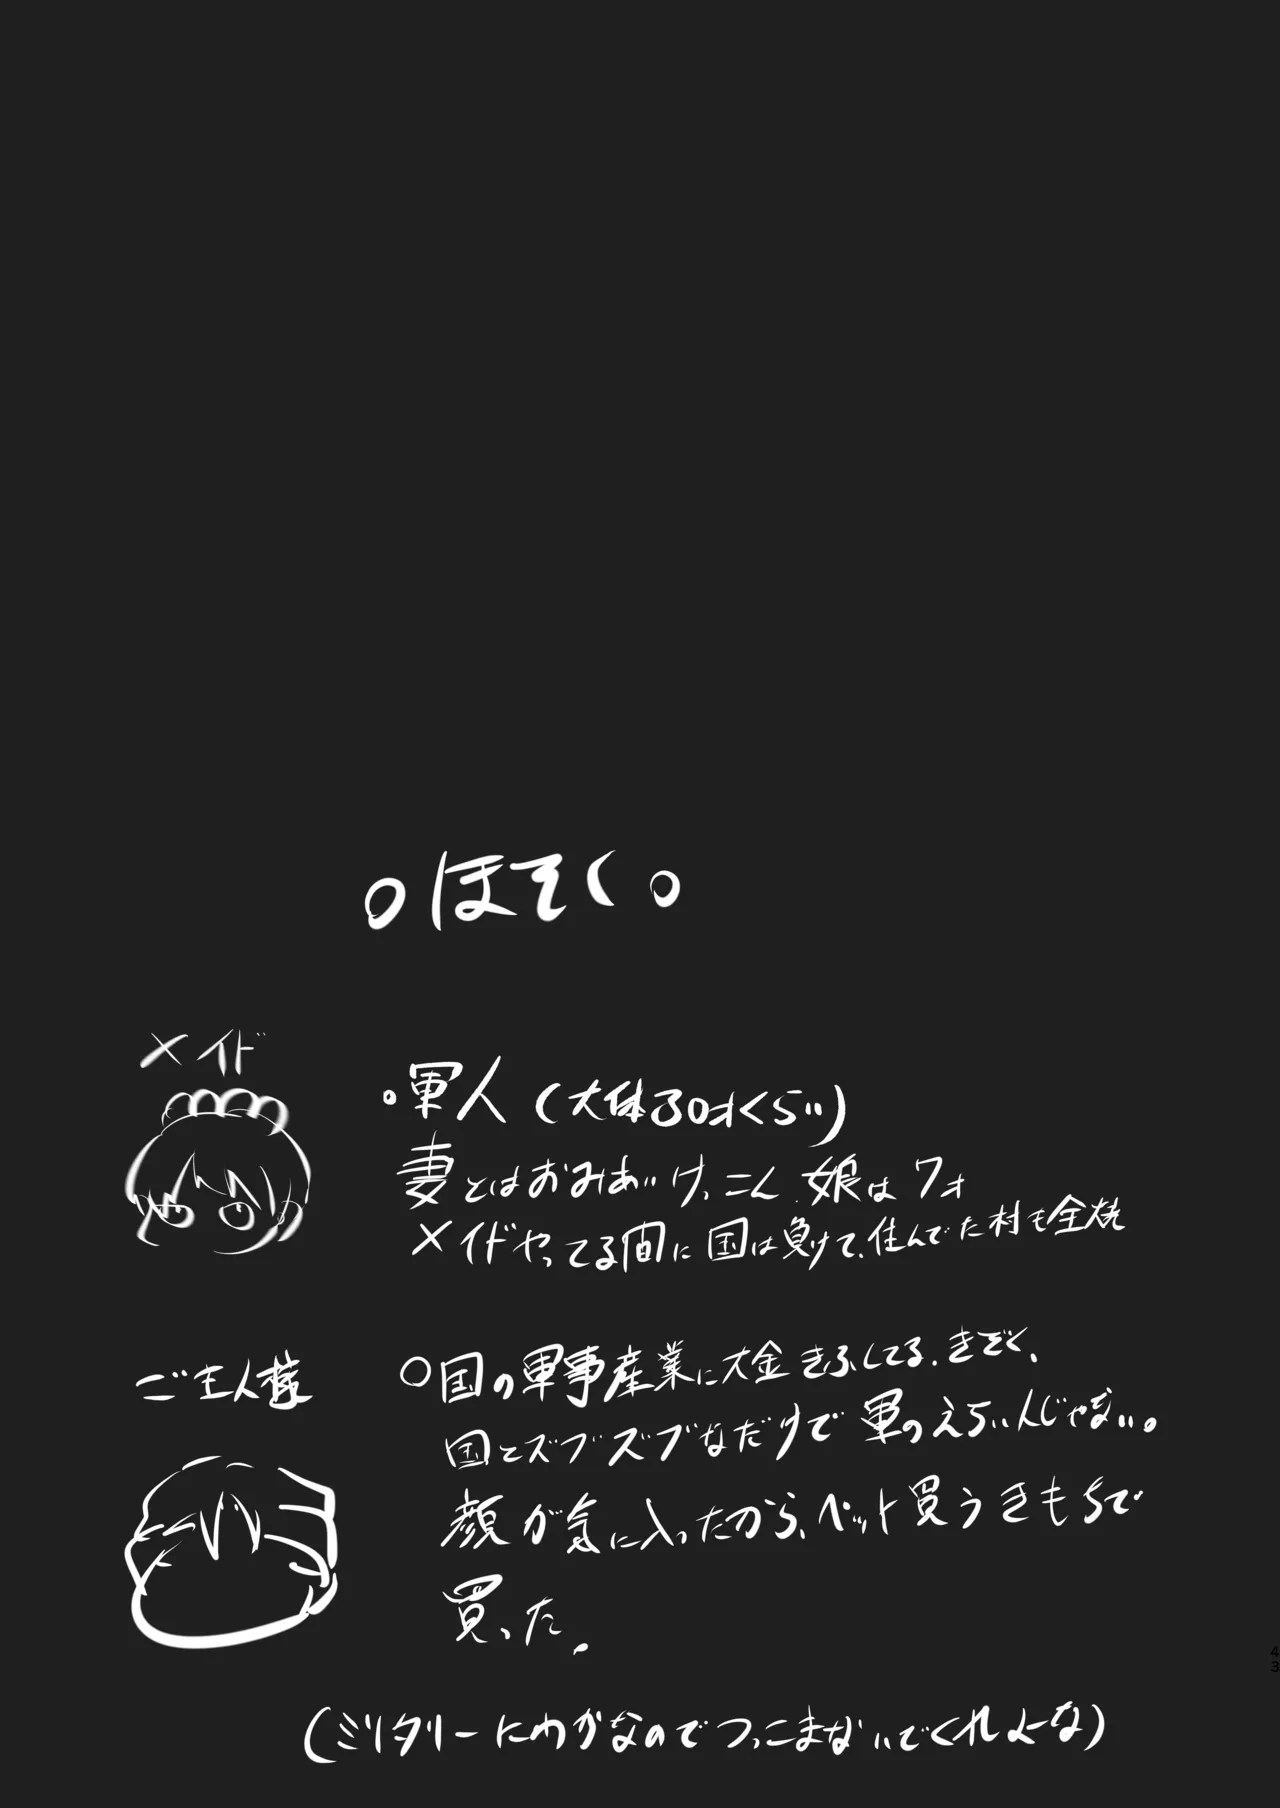 。ほそく。
メイド
。軍人(大体30才くらい)
妻とはおみあいけっこん 娘は7才
メイドやってる間に国は負けて、住んでた村も全焼
ご主人様
○国の軍事産業に大金きふしてる、きぞく、
国とズブズブなだけで軍のえらい人じゃない。
顔が気に入ったから、ペット買うきもちで
買った。
(ミリタリーにわかなのでつっこまないでくれよーな)
43